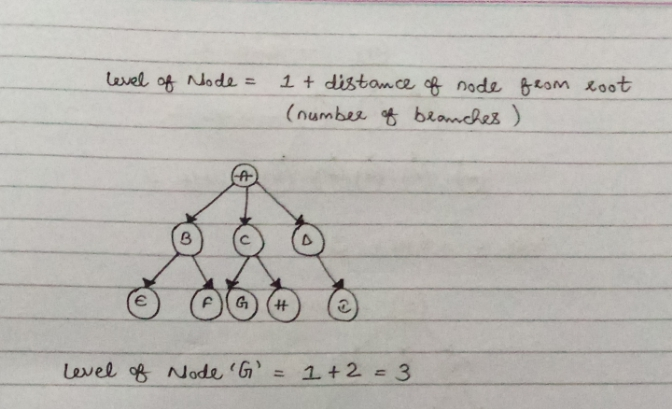 Level of Node = 1 + distance of node from root
(number of branches)
A
B C D
E F G H I
Level of Node 'G' = 1 + 2 = 3